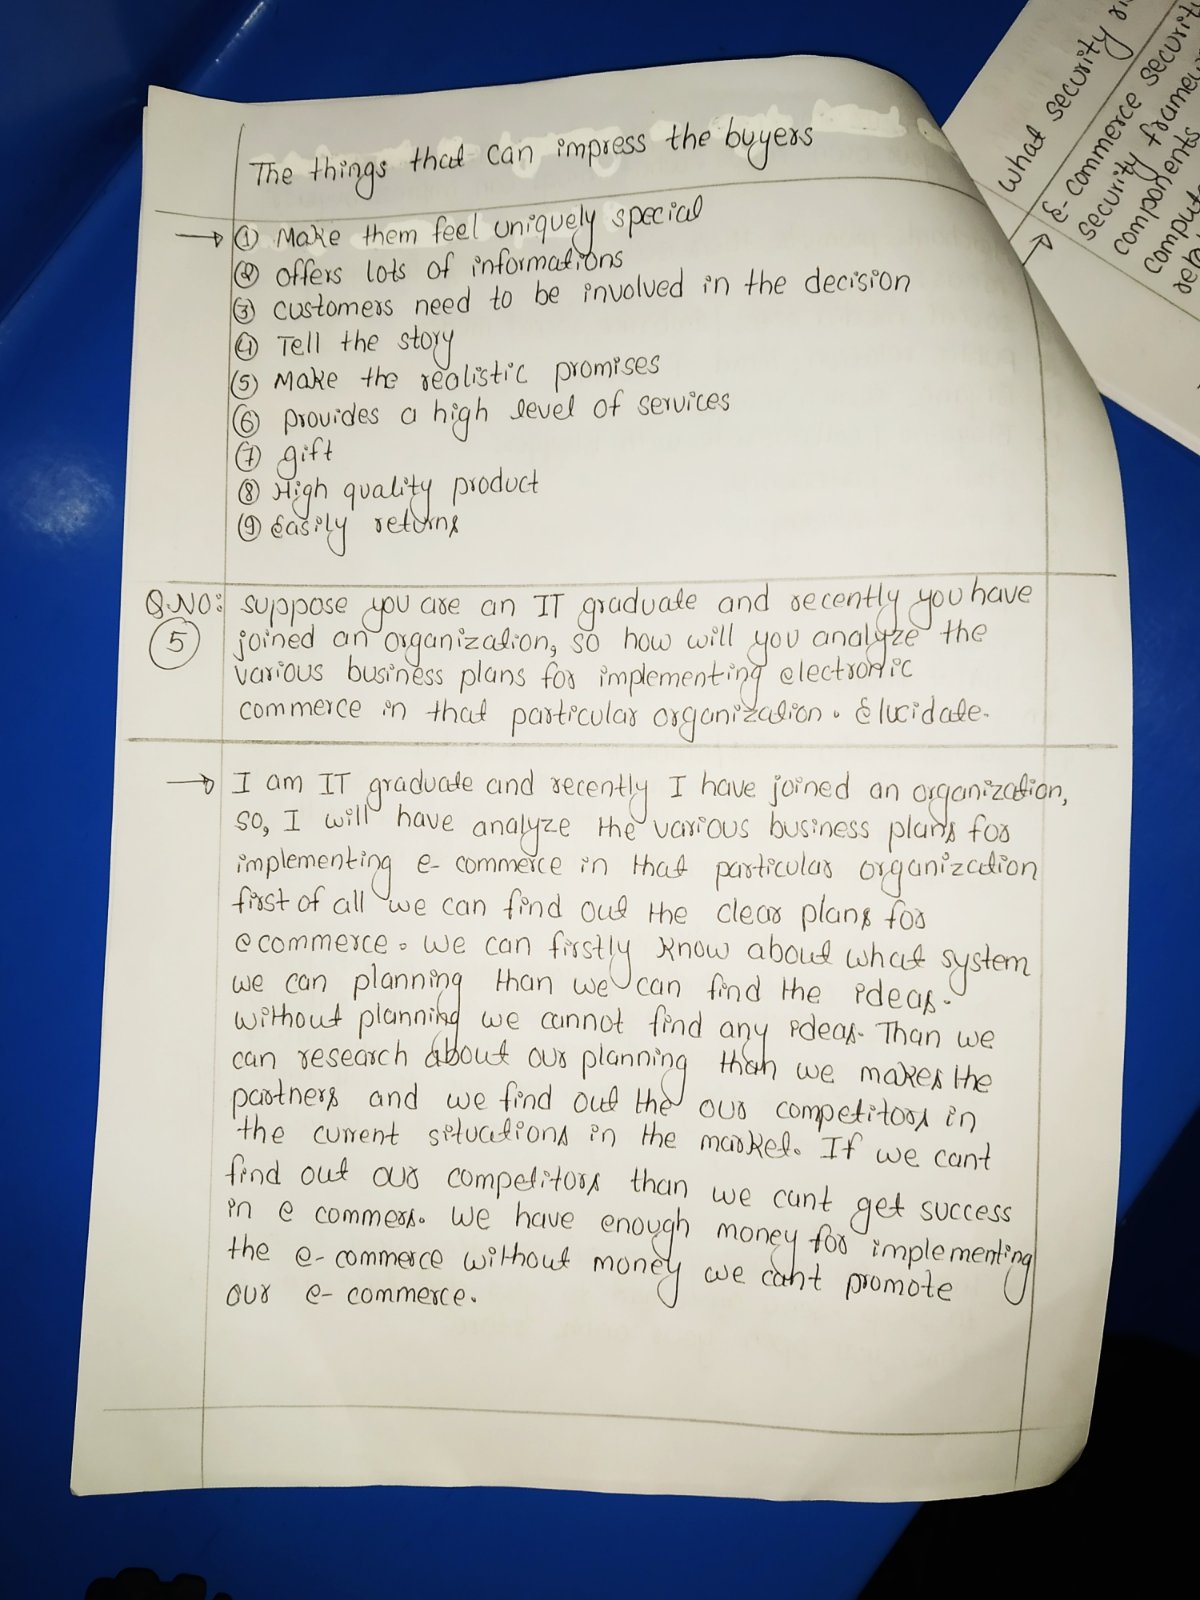 The things that can impress the buyers
→ ① Make them feel uniquely special
② offers lots of informations
③ customers need to be involved in the decision
④ Tell the story
⑤ Make the realistic promises
⑥ provides a high level of services
⑦ gift
⑧ High quality product
⑨ Easily returns
Q.NO: suppose you are an IT graduate and recently you have
5 joined an organization, so how will you analyze the
various business plans for implementing electronic
commerce in that particular organization. Elucidate.
→ I am IT graduate and recently I have joined an organization,
so, I will have analyze the various business plans for
implementing e- commerce in that particular organization
first of all we can find out the clear plans for
ecommerce. we can firstly know about what system
we can planning than we can find the ideas.
without planning we cannot find any ideas. Than we
can research about our planning than we makes the
partners and we find out the our competitors in
the current situations in the market. If we cant
find out our competitors than we cant get success
in e commers. We have enough money for implementing
the e-commerce without money we cant promote
our e- commerce.
what security
E-commerce security
security
components